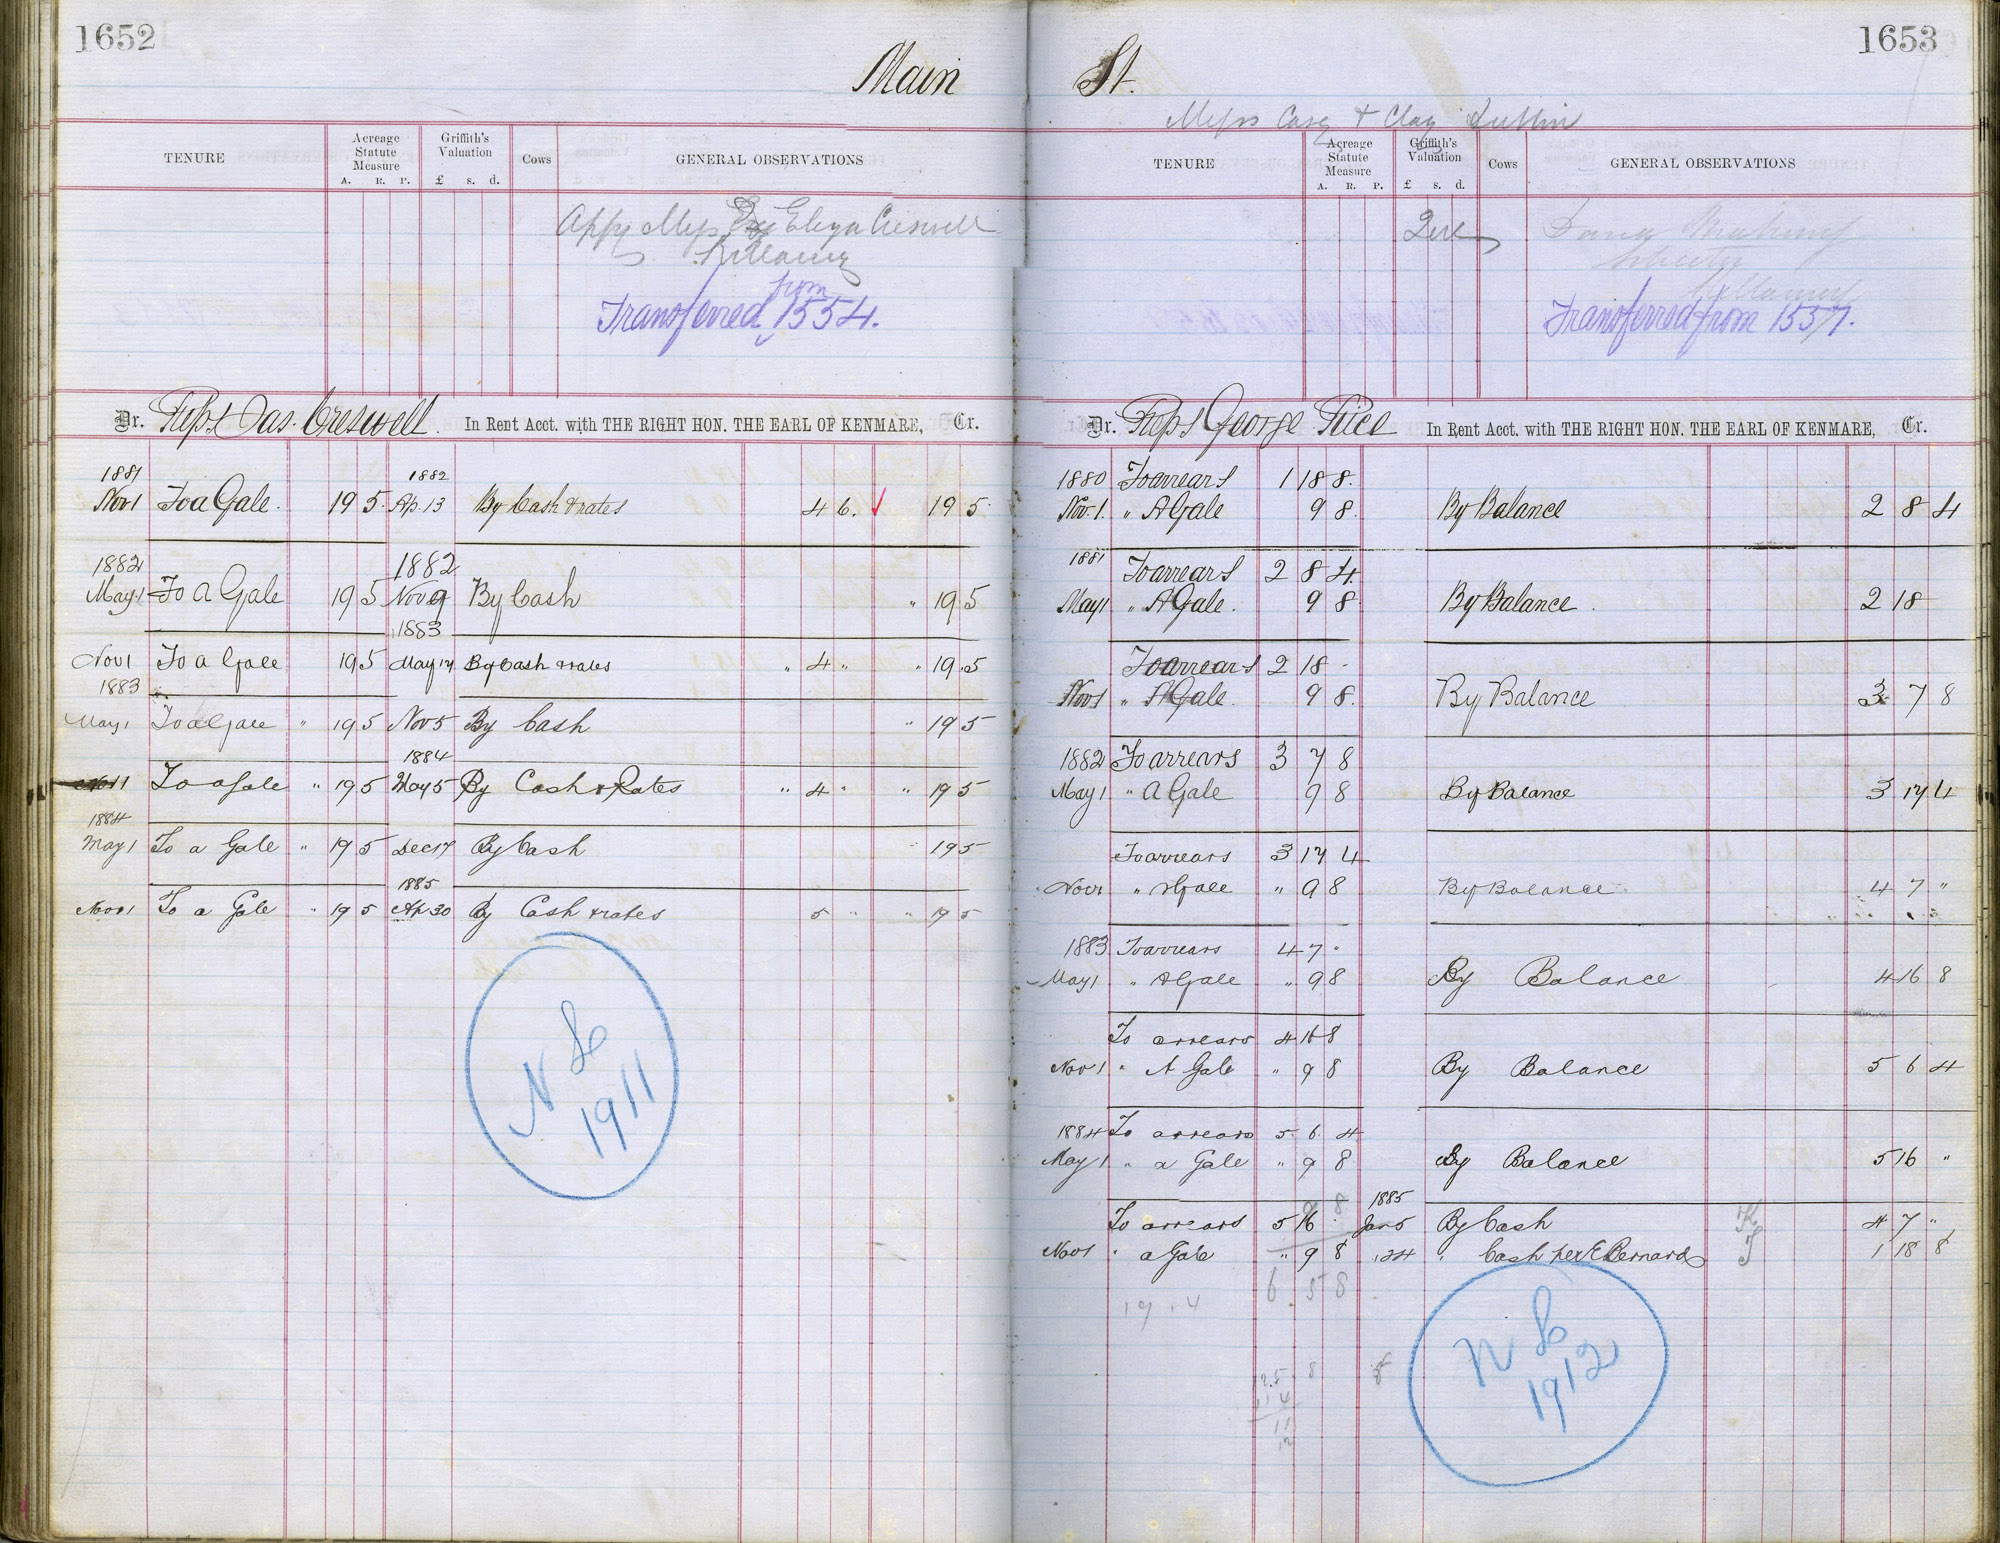 1652
Main
TENURE Acreage Statute Measure A. R. P. Griffith's Valuation £ s. d. Cows GENERAL OBSERVATIONS
Appy Eliza Creswell
Killarney
Transferred from 1554.
Dr. Reps Jas. Creswell. In Rent Acct. with THE RIGHT HON. THE EARL OF KENMARE, Cr.
1881 1882
Nov 1 To a Gale. 19 5 Ap. 13 By Cash & rates 4 6. 19 5
1882 1882
May 1 To a Gale 19 5 Nov 9 By Cash " 19 5
1883
Nov 1 To a Gale 19 5 May 17 By Cash & rates " 4 " " 19 5
1883
May 1 To a Gale " 19 5 Nov 5 By Cash " 19 5
1884
Nov 1 To a Gale " 19 5 May 5 By Cash & Rates " 4 " " 19 5
1884
May 1 To a Gale " 19 5 Dec 17 By Cash " 19 5
1885
Nov 1 To a Gale " 19 5 Ap 30 By Cash & rates 5 " " 19 5
N L
1911
1653
St.
Messrs Casey & Clay Dublin
TENURE Acreage Statute Measure A. R. P. Griffith's Valuation £ s. d. Cows GENERAL OBSERVATIONS
Killarney
Transferred from 1557.
Dr. Reps George Rice In Rent Acct. with THE RIGHT HON. THE EARL OF KENMARE, Cr.
1880 To arrears 1 18 8.
Nov. 1. " A Gale 9 8. By Balance 2 8 4
1881 To arrears 2 8 4.
May 1 " A Gale. 9 8 By Balance. 2 18
To arrears 2 18 -
Nov 1 " A Gale. 9 8. By Balance 3 7 8
1882 To arrears 3 7 8
May 1 " A Gale 9 8 By Balance 3 17 4
To arrears 3 17 4
Nov 1 " A Gale " 9 8 By Balance 4 7 "
1883 To arrears 4 7 "
May 1 " A Gale " 9 8 By Balance 4 16 8
To arrears 4 16 8
Nov 1 " A Gale " 9 8 By Balance 5 6 4
1884 To arrears 5 6 4
May 1 " a Gale " 9 8 By Balance 5 16 "
9 8 1885
To arrears 5 16 . Jan 5 By Cash 4 7 "
Nov 1 " a Gale " 9 8 " 24 " Cash per E Bernard 1 18 8
6 5 8
19 . 4
12.5 8 5
11 4
11
12
N L
1912